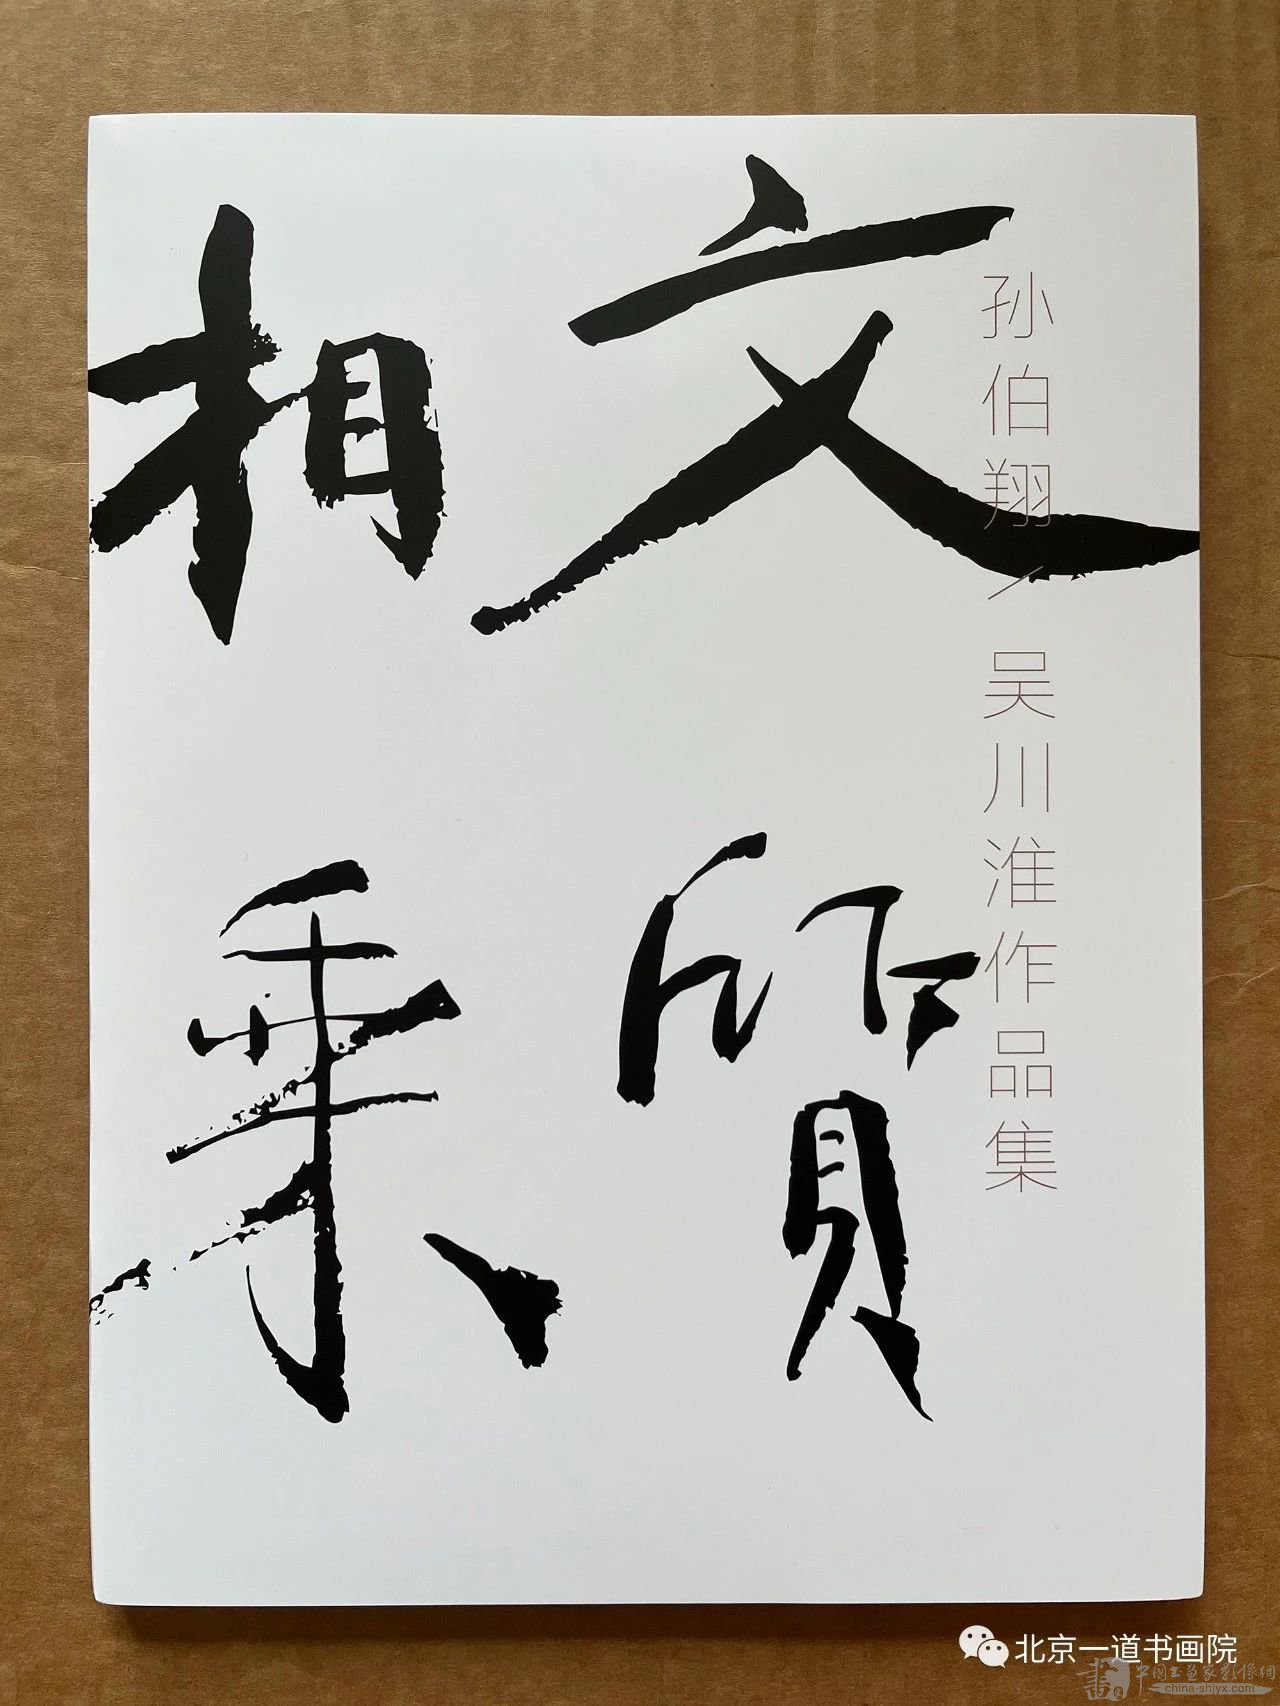 文质
相乘
孙伯翔/吴川淮作品集
北京一道书画院
中国工艺家影像网
china-shjyx.com